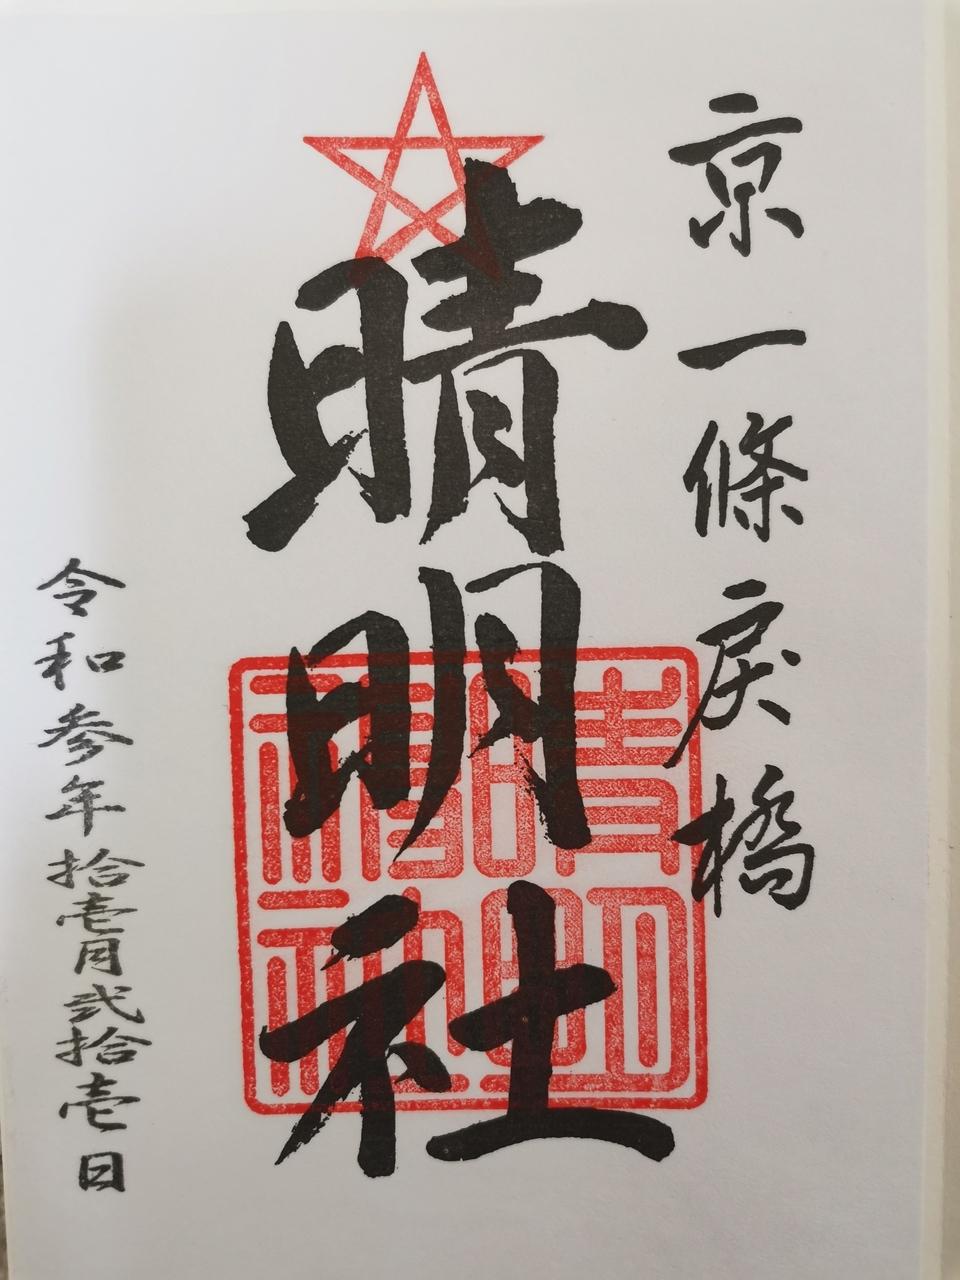 京一條戻橋
晴明社
令和参年拾壱月弐拾壱日